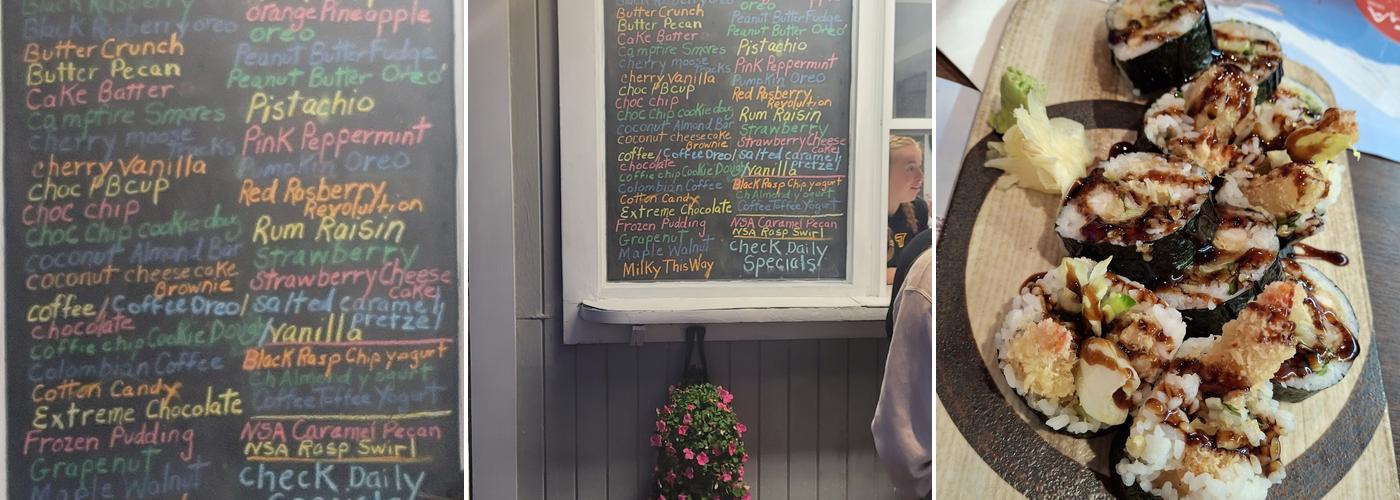 Black Raspberry
Black Raspberry oreo
Butter Crunch
Butter Pecan
Cake Batter
Campfire Smores
Cherry moose Tracks
cherry Vanilla
choc PBcup
choc chip
choc chip cookie doug
coconut Almond Bar
coconut cheesecake
Brownie
coffee/Coffee Oreo/
chocolate
coffie chip Cookie Dough
Colombian Coffee
Cotton Candy
Extreme Chocolate
Frozen Pudding
Grapenut
Maple Walnut
orange Pineapple
oreo
Peanut Butter Fudge
Peanut Butter Oreo
Pistachio
Pink Peppermint
Pumpkin Oreo
Red Rasberry
Revolution
Rum Raisin
Strawberry
Strawberry Cheese
cake
salted caramel
pretzel
Vanilla
Black Rasp Chip yogurt
Ch Almond yogurt
Coffee Toffee Yogurt
NSA Caramel Pecan
NSA Rasp Swirl
Check Daily
Specials
Butter Crunch
Butter Pecan
Cake Batter
Campfire Smores
cherry moose Tracks
cherry Vanilla
choc PBcup
choc chip
choc chip cookie doug
coconut Almond Bar
coconut cheesecake
Brownie
coffee/Coffee Oreo/
chocolate
coffie chip Cookie Dough
Colombian Coffee
Cotton Candy
Extreme Chocolate
Frozen Pudding
Grapenut
Maple Walnut
Milky This Way
oreo
Peanut Butter Fudge
Peanut Butter Oreo
Pistachio
Pink Peppermint
Pumpkin Oreo
Red Raspberry
Revolution
Rum Raisin
Strawberry
Strawberry Cheese
cake
salted caramel
pretzel
Vanilla
Black Rasp Chip yogurt
Ch Almond yogurt
Coffee Toffee Yogurt
NSA Caramel Pecan
NSA Rasp Swirl
Check Daily
Specials!